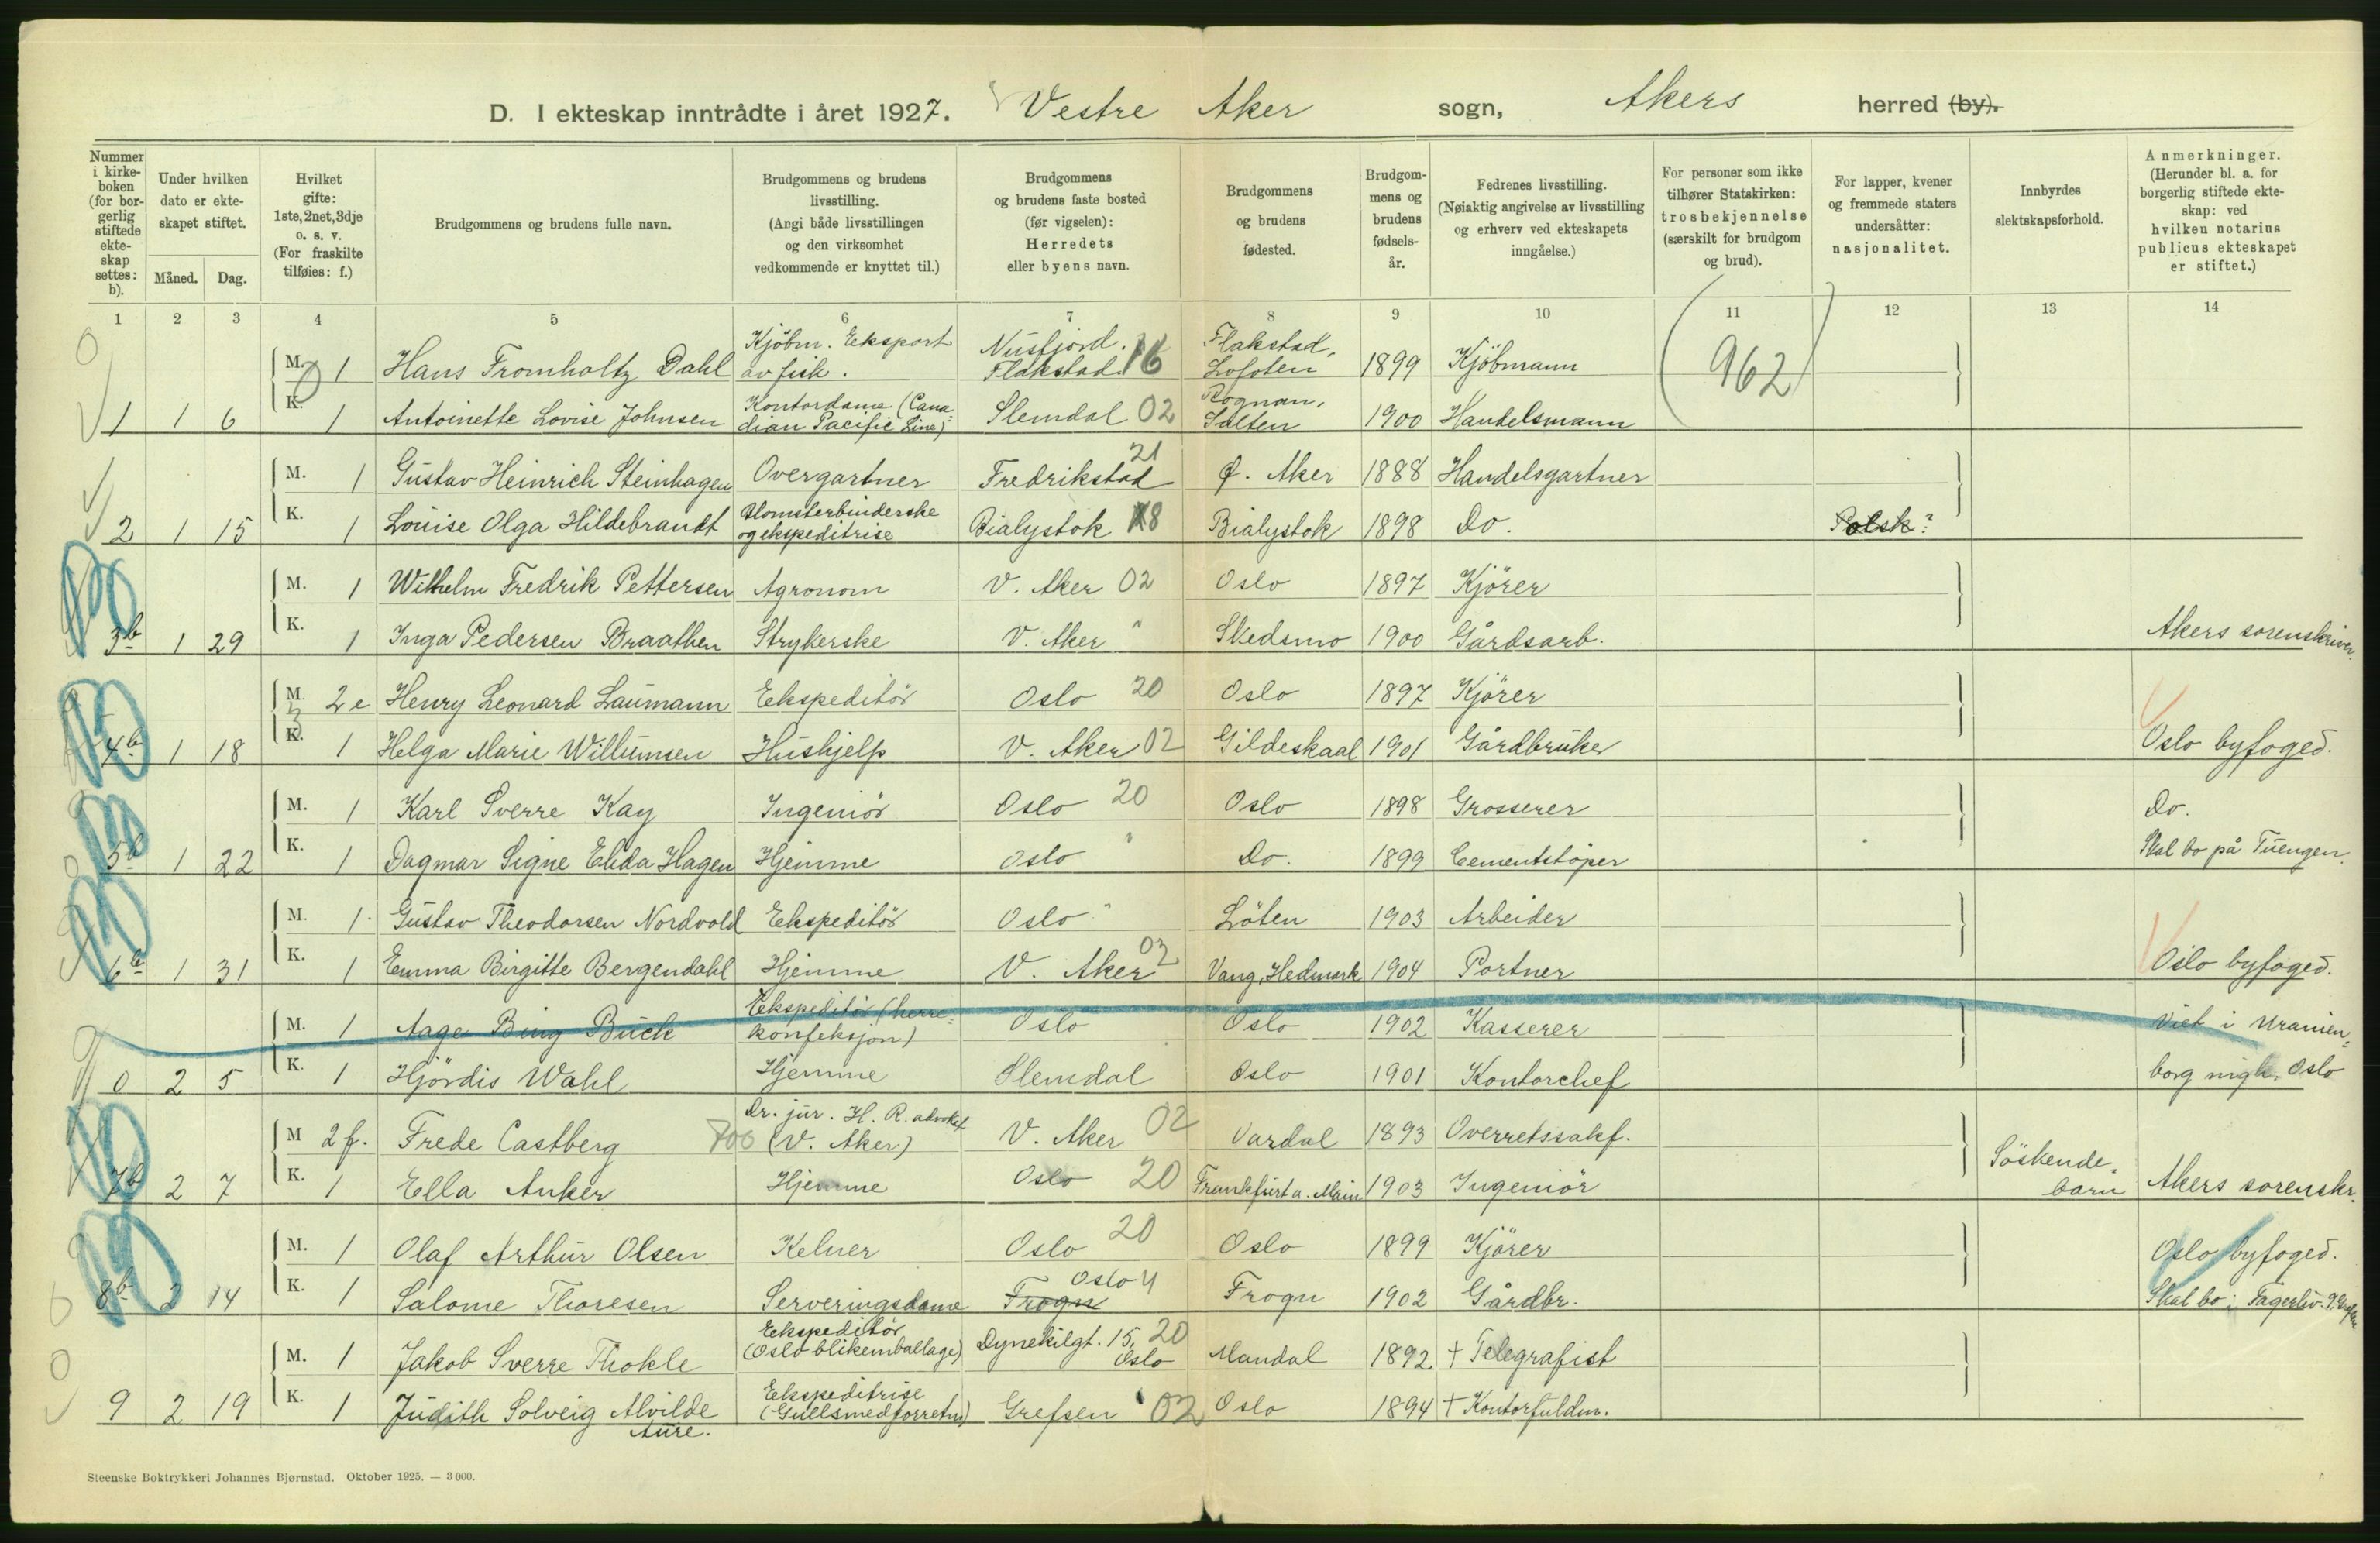 D. I ekteskap inntrådte i året 1927. Vestre Aker sogn, Akers herred (by).
Nummer i kirke-boken (for bor-gerlig stiftede ekte-skap settes: b).
Under hvilken dato er ekte-skapet stiftet.
Måned. Dag.
Hvilket gifte: 1ste, 2net, 3dje o. s. v. (For fraskilte tilføies: f.)
Brudgommens og brudens fulle navn.
Brudgommens og brudens livsstilling. (Angi både livsstillingen og den virksomhet vedkommende er knyttet til.)
Brudgommens og brudens faste bosted (før vigselen): Herredets eller byens navn.
Brudgommens og brudens fødested.
Brudgom-mens og brudens fødsels-år.
Fedrenes livsstilling. (Nøiaktig angivelse av livsstilling og erhverv ved ekteskapets inngåelse.)
For personer som ikke tilhører Statskirken: trosbekjennelse (særskilt for brudgom og brud).
For lapper, kvener og fremmede staters undersåtter: nasjonalitet.
Innbyrdes slektskapsforhold.
Anmerkninger. (Herunder bl. a. for borgerlig stiftede ekte-skap: ved hvilken notarius publicus ekteskapet er stiftet.)
1 2 3 4 5 6 7 8 9 10 11 12 13 14
M. 1 Hans Fromholtz Dahl Kjöbm. Eksport av fisk. Nusfjord. Flakstad 16 Flakstad, Lofoten 1899 Kjöbmann 962
1 1 6 K. 1 Antoinette Lovise Johnsen Kontordame (Canadian Pacific Line) Slemdal 02 Rognan, Salten 1900 Handelsmann
M. 1 Gustav Heinrich Steinhagen Overgartner Fredrikstad 21 Ø. Aker 1888 Handelsgartner
2 1 15 K. 1 Louise Olga Hildebrandt Blomsterbinderske og ekspeditrise Bialystok 18 Bialystok 1898 Do. Polsk?
M. 1 Wilhelm Fredrik Pettersen Agronom V. Aker 02 Oslo 1897 Kjörer
3b 1 29 K. 1 Inga Pedersen Braathen Strykerske V. Aker " Skedsmo 1900 Gårdsarb. Akers sorenskriver.
M. 2e Henry Leonard Laumann Ekspeditör Oslo 20 Oslo 1897 Kjörer
4b 1 18 K. 1 Helga Marie Willumsen Hushjelp V. Aker 02 Gildeskaal 1901 Gårdbruker Oslo byfoged.
M. 1 Karl Sverre Kay Ingeniör Oslo 20 Oslo 1898 Grosserer Do.
5b 1 22 K. 1 Dagmar Signe Elida Hagen Hjemme Oslo " Do. 1899 Cementstöper Skal bo på Tuengen.
M. 1 Gustav Theodorsen Nordvold Ekspeditör Oslo " Löten 1903 Arbeider
6b 1 31 K. 1 Emma Birgitte Bergendahl Hjemme V. Aker 02 Vang, Hedmark 1904 Portner Oslo byfoged.
M. 1 Aage Bing Buch Ekspeditör (herre-konfeksjon) Oslo Oslo 1902 Kasserer Viet i Uranien-
0 2 5 K. 1 Hjördis Wahl Hjemme Slemdal Oslo 1901 Kontorchef borg mgh. Oslo
M 2 f. Frede Castberg 700 Dr. jur. H. R. advokat (V. Aker) V. Aker 02 Vardal 1893 Overretssakf.
7b 2 7 K. 1 Ella Anker Hjemme Oslo 20 Frankfurt a. Main 1903 Ingeniör Söskende-barn Akers sorenskr.
M. 1 Olaf Arthur Olsen Kelner Oslo 20 Oslo 1899 Kjörer Oslo byfoged.
8b 2 14 K. 1 Salome Thoresen Serveringsdame Frogn Oslo 4 Frogn 1902 Gårdbr. Skal bo i Fagerliv.
M. 1 Jakob Sverre Thokle Ekspeditör (Oslo blikemballage) Dynekilgt. 15, Oslo 20 Mandal 1892 + Telegrafist
9 2 19 K. 1 Judith Solveig Alvilde Aure. Ekspeditrise (Gullsmedforretn) Grefsen 02 Oslo 1894 + Kontorfuldm.
Steenske Boktrykkeri Johannes Bjørnstad. Oktober 1925. — 3 000.